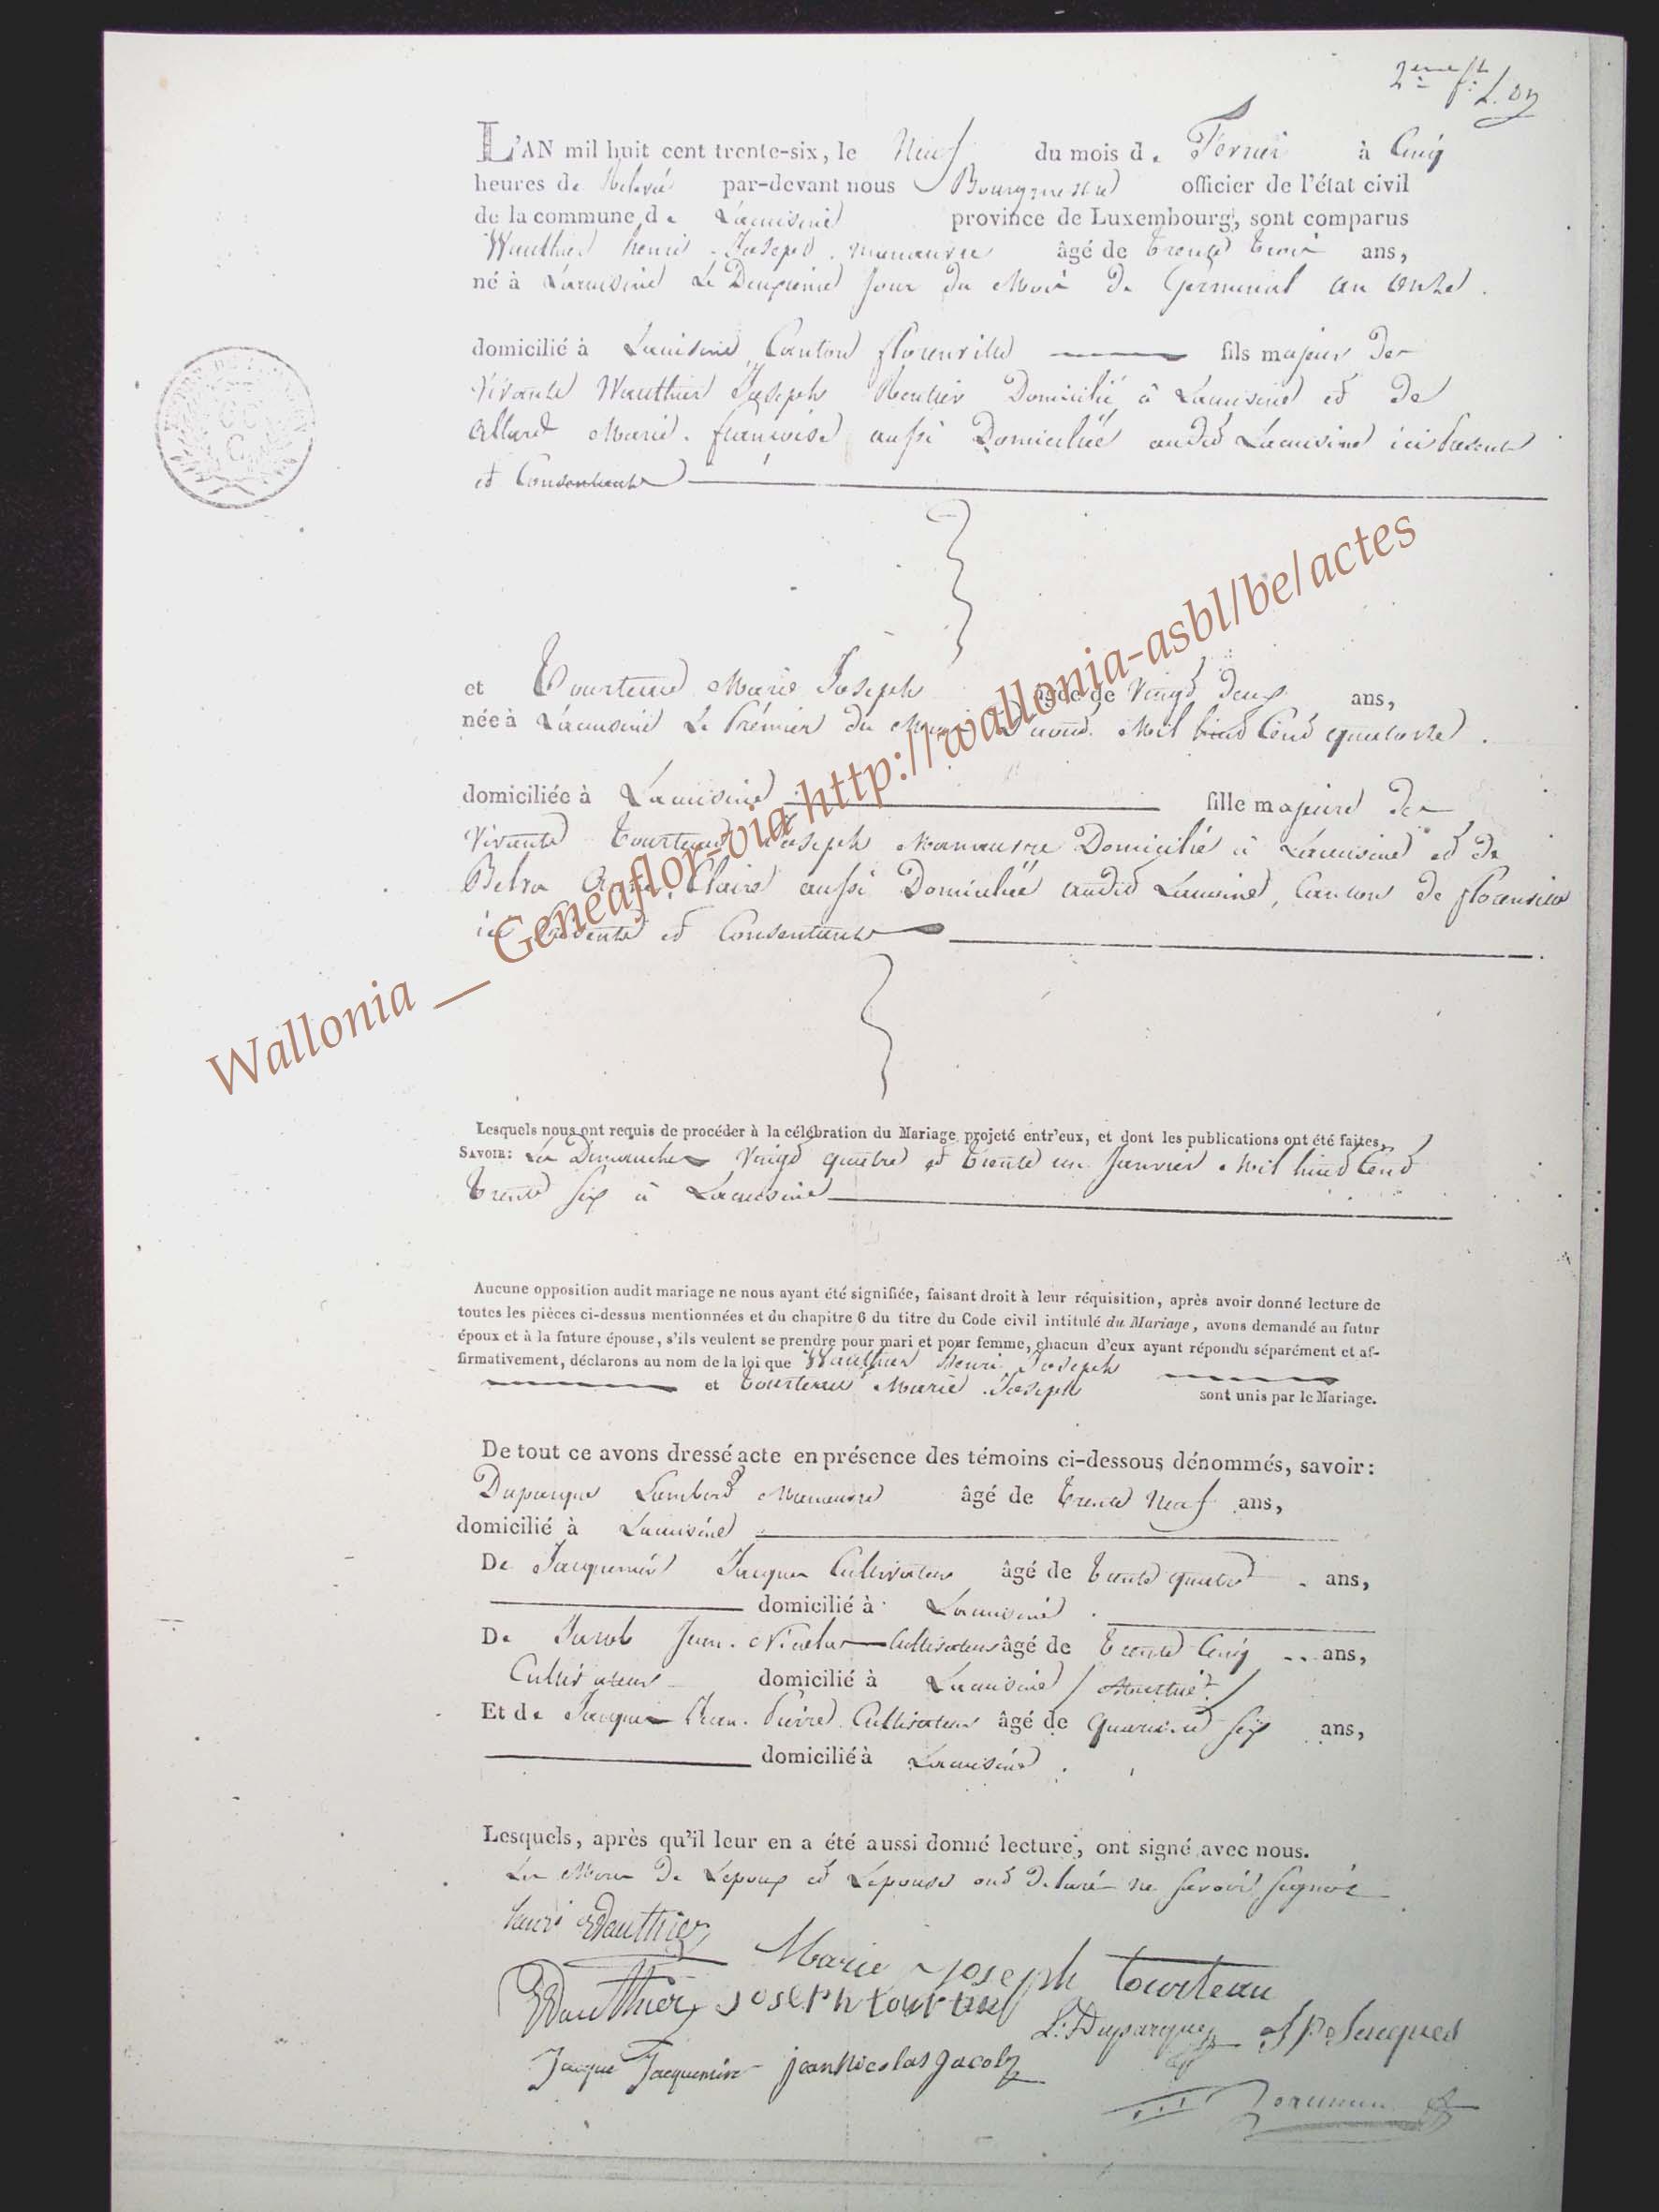 2ème f^t
L'AN mil huit cent trente-six, le Neuf du mois de Fevrier à Cinq
heures de Relevée par-devant nous Bourguemestre officier de l'état civil
de la commune de Lacuisine province de Luxembourg, sont comparus
Wauthier henri Joseph manoeuvre âgé de trente trois ans,
né à Lacuisine Le Deuxieme Jour du Mois De Germinal an onze.
domicilié à Lacuisine, Canton florenville fils majeur Des
Vivants Wauthier Joseph Rentier Domicilié à Lacuisine et De
Allard Marie françoise aussi Domiciliée audit Lacuisine ici Présents
et Consentants
et Tourteau Marie Joseph âgée de Vingt Deux ans,
née à Lacuisine Le Prémier du Mois D'aout Mil huit Cent quatorze.
domiciliée à Lacuisine fille majeure Des
Vivants Tourteau Joseph Manoeuvre Domicilié à Lacuisine et De
Belva Claire aussi Domiciliée audit Lacuisine, Canton de florenville
ici Présents et Consentants
Lesquels nous ont requis de procéder à la célébration du Mariage projeté entr'eux, et dont les publications ont été faites,
SAVOIR: Les Dimanches Vingt quatre et trente un Janvier Mil huit Cent
trente six à Lacuisine
Aucune opposition audit mariage ne nous ayant été signifiée, faisant droit à leur réquisition, après avoir donné lecture de
toutes les pièces ci-dessus mentionnées et du chapitre 6 du titre du Code civil intitulé du Mariage, avons demandé au futur
époux et à la future épouse, s'ils veulent se prendre pour mari et pour femme, chacun d'eux ayant répondu séparément et af-
firmativement, déclarons au nom de la loi que Wauthier Henri Joseph
et Tourteau Marie Joseph sont unis par le Mariage.
De tout ce avons dressé acte en présence des témoins ci-dessous dénommés, savoir:
Duparque Lambert Manoeuvre âgé de trente Neuf ans,
domicilié à Lacuisine
De Jacquemin Jacques Cultivateur âgé de trente quatre ans,
domicilié à Lacuisine.
De Jacob Jean Nicolas Cultivateur âgé de trente Cinq ans,
Cultivateur domicilié à Lacuisine
Et de Jacques Jean Pierre Cultivateur âgé de quarante six ans,
domicilié à Lacuisine.
Lesquels, après qu'il leur en a été aussi donné lecture, ont signé avec nous.
Les Meres De L'epoux et L'epouse ont Declaré ne Savoir Signer
henri Wauthier
Marie Joseph tourteau
Wauthier Joseph tourteau
L. Duparque J P Jacques
Jacque Jacquemin jean Nicolas Jacob
Wallonia __ Geneaflor=via http://wallonia-asbl/be/actes